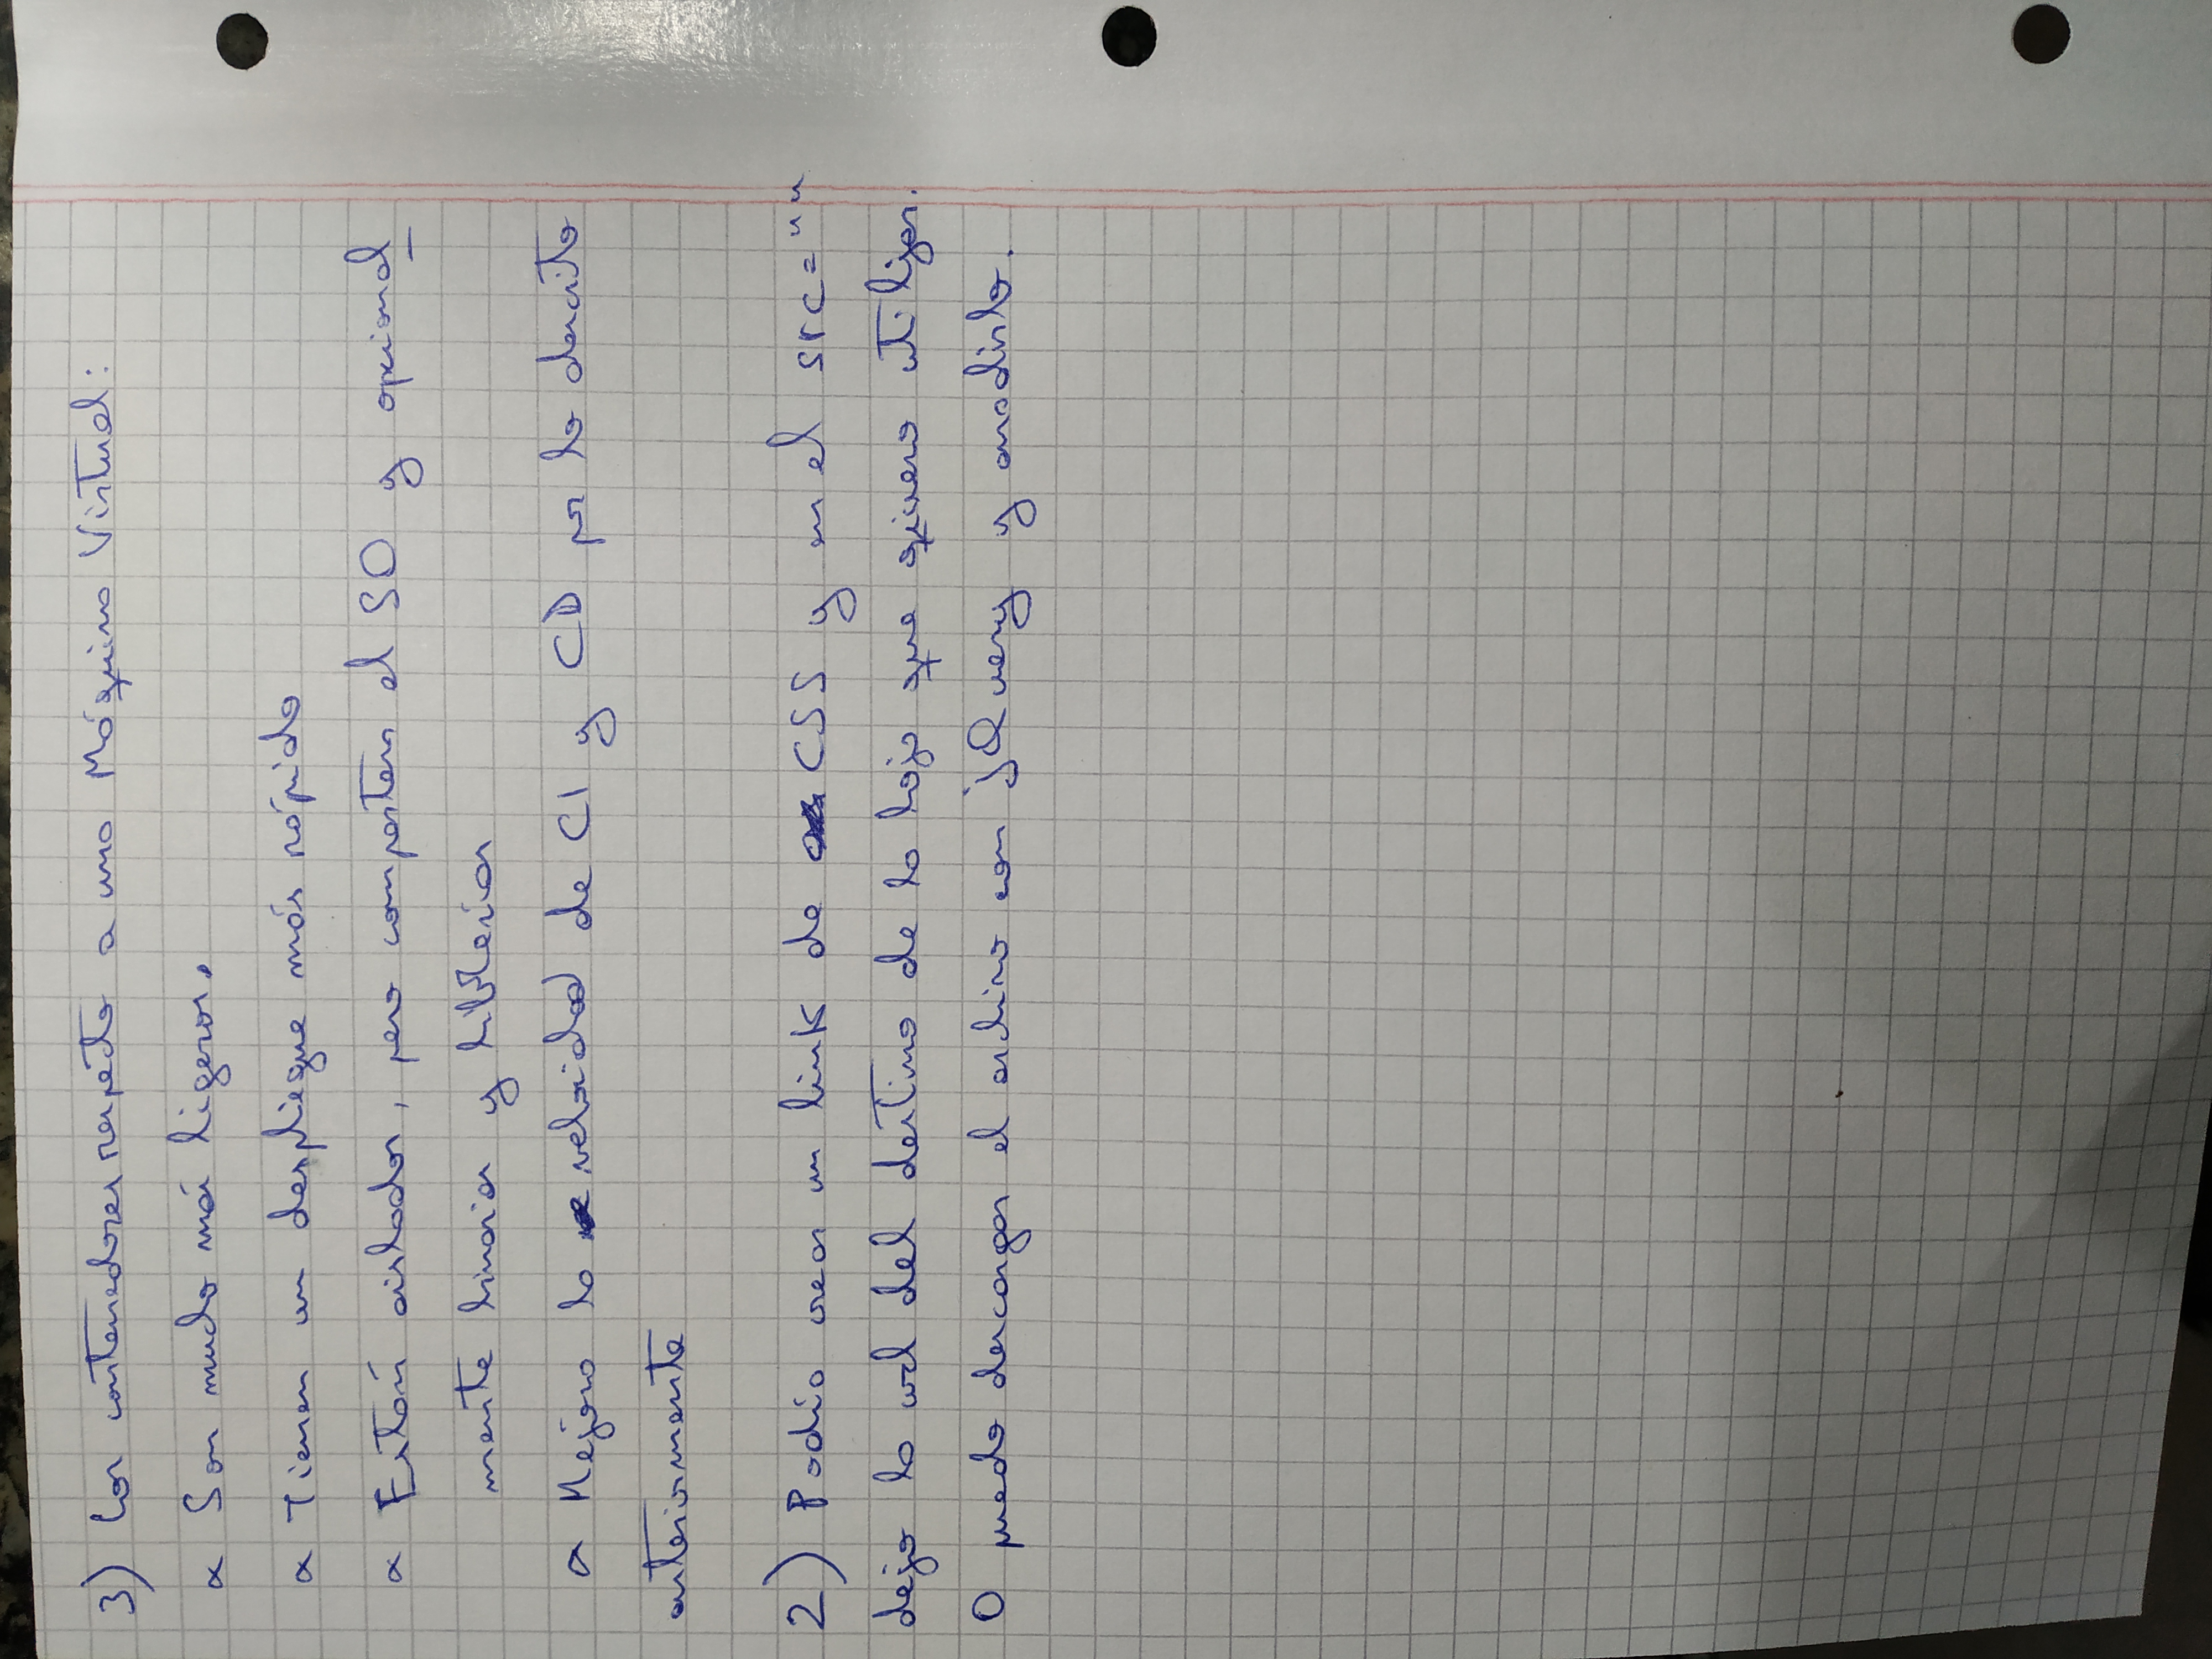 3) Los contenedores respecto a una Máquina Virtual:
∝ Son mucho más ligeros.
∝ Tienen un despliegue más rápido
∝ Están aislados, pero comparten el SO y opcional
mente binarios y librerías
∝ Mejora la velocidad de CI y CD por lo descrito
anteriormente
2) Podía crear un link de CSS y en el src=""
dejo la url del destino de la hoja que quiero utilizar.
O puedo descargar el archivo con jQuery y anadirlo.